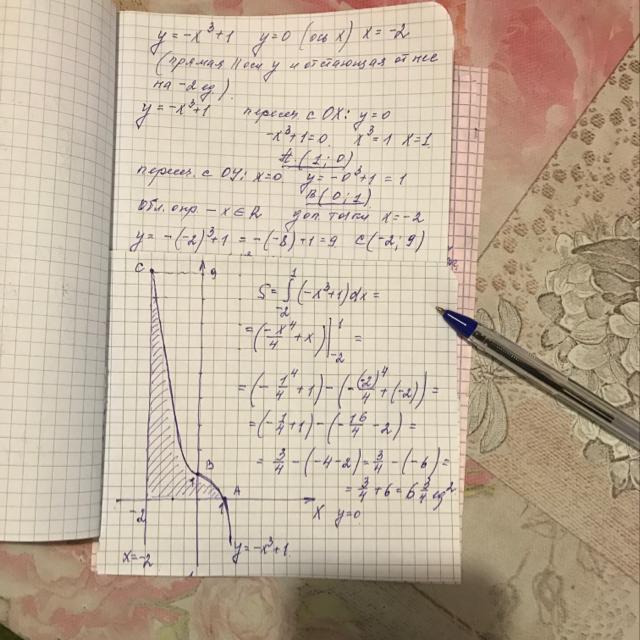 y = -x³+1   y=0 (ось x)   x = -2
(прямая || оси y и отстающая от нее
на -2 ед).
y = -x³+1   пересеч. с OX: y=0
-x³+1=0   x³=1   x=1
A (1; 0)
пересеч. с OY: x=0   y = -0³+1 = 1
B (0; 1)
Обл. опр – x ∈ R   доп точки   x = -2
y = -(-2)³+1 = -(-8)+1=9   C(-2, 9)
C   9
S = ∫₋₂¹ (-x³+1) dx =
= (-x⁴/4 + x) |₋₂¹ =
= (-1⁴/4 + 1) - (-(-2)⁴/4 + (-2)) =
= (-1/4 + 1) - (-16/4 - 2) =
= 3/4 - (-4-2) = 3/4 - (-6) =
= 3/4 + 6 = 6 3/4 ед²
1   B
A
-2   1   x   y=0
x=-2   y=-x³+1